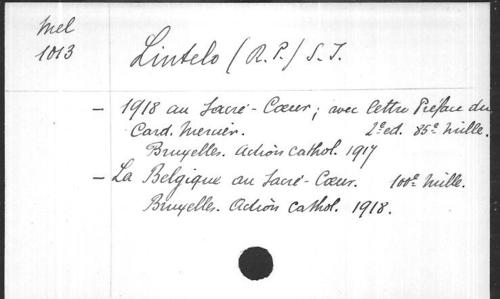 Mel
1013
Lintelo (R.P.) S.J.
- 1918 au Sacré-Cœur; avec lettre Préface du
Card. Mercier. 2e ed. 85e mille.
Bruxelles. Action Cathol. 1917
- La Belgique au Sacré-Cœur. 100e mille.
Bruxelles. Action Cathol. 1918.